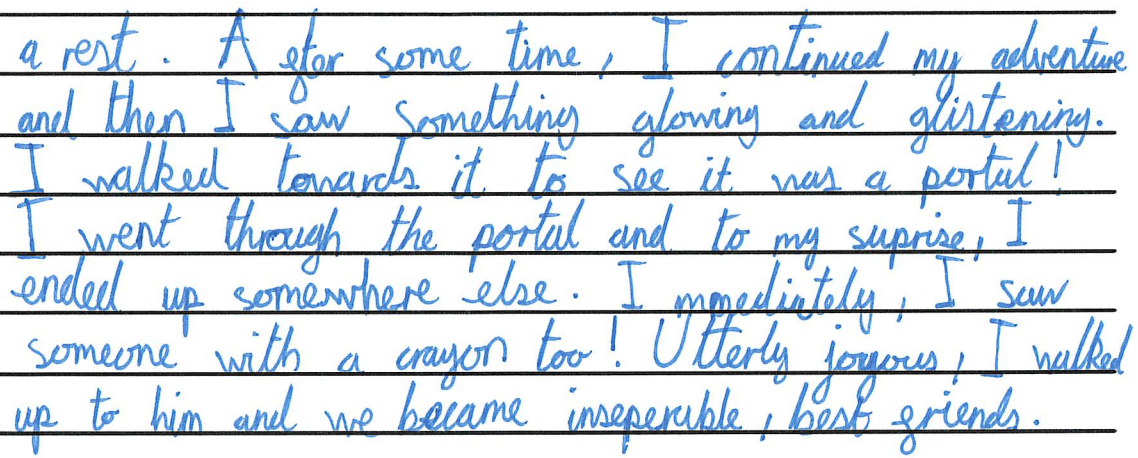 a rest. After some time, I continued my adventure
and then I saw something glowing and glistening.
I walked towards it to see it was a portal!
I went through the portal and to my suprise, I
ended up somewhere else. Immediately, I saw
someone with a crayon too! Utterly joyous, I walked
up to him and we became inseperable, best friends.